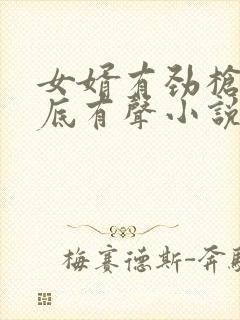 女婿有劲槍
底有聲小説
梅賽德斯-奔馳